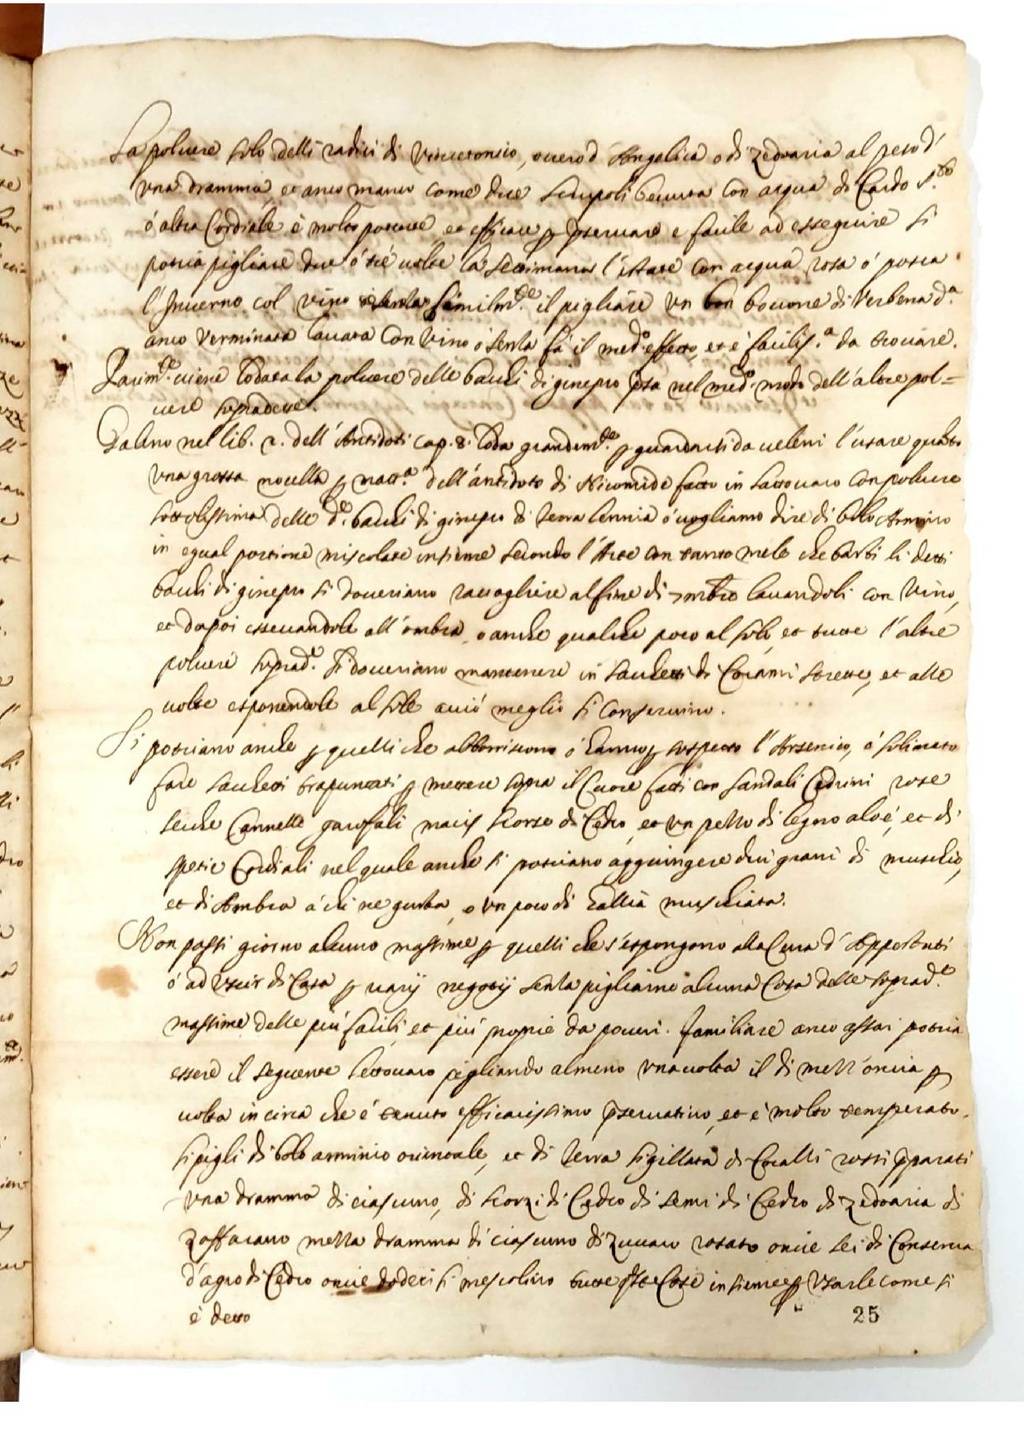 La poluere solo delli radici di Vincetonico, ouero d'Angelica o di Zedoaria al peso d'
una dramma, et anco manco come due scrupoli beuuta con acqua di Cardo s.to
ó altra Cordiale è molto potente et efficace p pseruare e facile ad esseguire si
potria pigliare due ó tré uolte la settimana l'estate con acqua rosa ó potria
l'Inuerno col vino similmte il pigliare un bon boccone di Verbena d.a
anco Verminata lauata con Vino o senza fá il medo effetto, et é faciliss.a da trouare.
Parimte uiene lodata la poluere delle bacchi di ginepro psa nel medo modo dell'altre pol=
uere sopradette.
Galeno nel lib. 2. dell'Antidoti cap. 8. loda grandemte p guardarsi da ueleni l'usare quanto
una grossa nocella p matt.a dell'antidoto di Nicomide fatto in lattouaro con poluere
sottolissima delle d.e bacchi di ginepro di terra lennia ó uogliamo dire di bolo Armino
in egual portione miscolate insieme secondo l'Arte con tanto mele che basti li detti
bacchi di ginepro si doueriano raccogliere al fine di 7mbro lauandoli con Vino,
et dopoi esseccandole all'ombra, o anche qualche poco al sole, et tutte l'altre
poluere soprad.e si doueriano mantenere in sacchetti di Corami strette, et alle
uolte esponendole al sole acció meglio si conseruino.
Si potriano anche p quelli che abborriscono ó hanno p sospetto l'Arsenico, ó solimato
fare sacchetti trapuntati p mettere sopra il Cuore fatti con sandali Cedrini rose
secche Cannelle garofali macis scorze di Cedro, et un pezzo di legno aloé, et di
spetie Cordiali nel quale anche si potriano aggiungere dui grani di muschio,
et di Ambra á chi ne gusta, o un poco di Gallia muschiata.
Non passi giorno alcuno massime p quelli che s'espongono alla Cura d'Appestati
ó ad uscir di Casa p uarij negotij senza pigliarne alcuna Cosa delle soprad.e
massime delle piú facili, et piú proprie da poueri. familiare anco assai potria
essere il seguente lettouaro pigliando almeno una uolta il di mezz'oncia p
uolta in circa che é tenuto efficacissimo pseruatiuo, et é molto temperato.
si pigli di bolo arminio orientale, et di terra sigillata di Coralli rossi pparati
una dramma di ciascuno, di scorzi di Cedro di semi di Cedro di zedoaria di
Zaffarano mezza dramma di ciascuno di Zuccaro rosato oncie sei di Conserua
d'agro di Cedro oncie dodeci si mescolino tutte qste Cose insieme p usarle come si
é detto
25